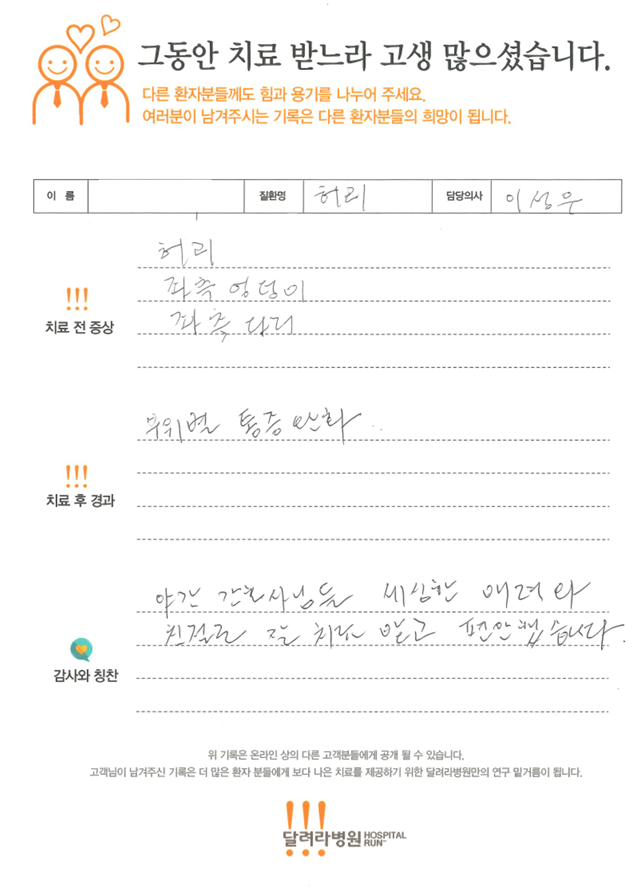 그동안 치료 받느라 고생 많으셨습니다.
다른 환자분들께도 힘과 용기를 나누어 주세요.
여러분이 남겨주시는 기록은 다른 환자분들의 희망이 됩니다.
이 름 질환명 허리 담당의사 이성우
허리
좌측 엉덩이
!!!
치료 전 증상
좌측 다리
부위별 통증 완화..
!!!
치료 후 경과
야간 간호사님들 세심한 배려와
친절로 잘 치료 받고 편안했습니다.
감사와 칭찬
위 기록은 온라인 상의 다른 고객분들에게 공개 될 수 있습니다.
고객님이 남겨주신 기록은 더 많은 환자 분들에게 보다 나은 치료를 제공하기 위한 달려라병원만의 연구 밑거름이 됩니다.
!!!
달려라병원 HOSPITAL RUN